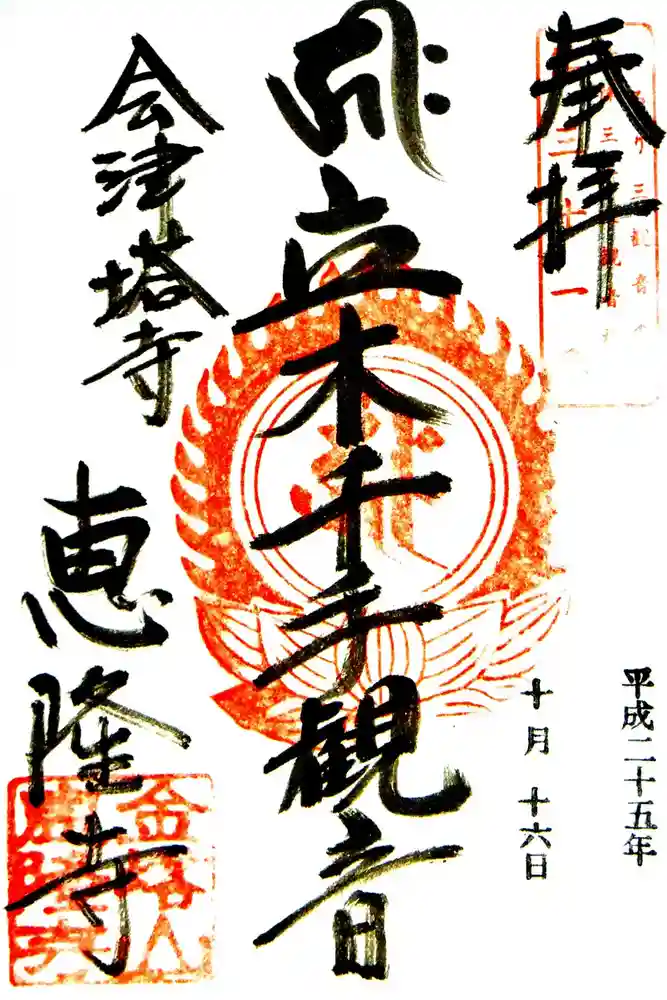 奉拝
三十一
平成二十五年
十月十六日
立木千手観音
会津塔寺
恵隆寺